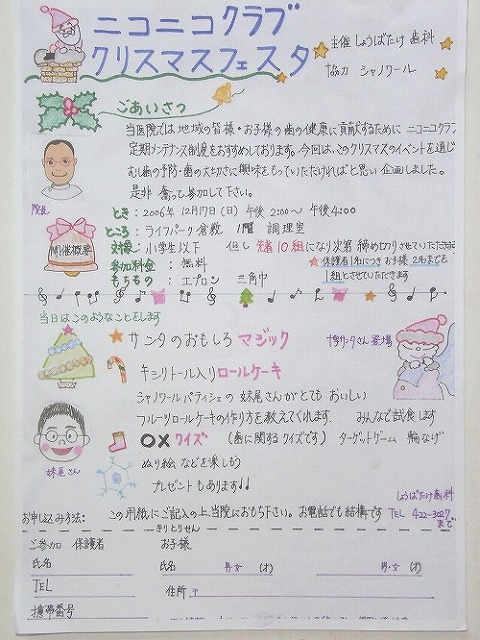 ニコニコクラブ
クリスマスフェスタ
主催 しょうばたけ歯科
協力 シャノワール
ごあいさつ
当医院では地域の皆様・お子様の歯の健康に貢献するために ニコニコクラブ
定期メンテナンス制度をおすすめしております。今回は、このクリスマスのイベントを通じ
むし歯の予防・歯の大切さに興味をもっていただければと思い企画しました。
是非 奮って参加して下さい。
院長
開催概要
とき：2006年 12月17日(日) 午後2:00〜午後4:00
ところ：ライフパーク倉敷 1階 調理室
対象：小学生以下 但し 先着10組になり次第 締め切りさせていただきます
参加料金：無料
★保護者1名につきお子様 2名までを
1組とさせていただきます
もちもの：エプロン 三角巾
当日はこのようなことをします
★サンタのおもしろマジック
サンタさん登場
キシリトール入りロールケーキ
シャノワールパティシエの妹尾さんがとても おいしい
フルーツロールケーキの作り方を教えてくれます. みんなで試食します
妹尾さん
○×クイズ (歯に関するクイズです) ターゲットゲーム 輪なげ
ぬり絵 などを楽しもう
プレゼントもあります!!
しょうばたけ歯科
お申し込み方法： この用紙にご記入の上、当院におもち下さい。お電話でも結構です TEL 422-3027
まで
きりとりせん
ご参加 保護者 お子様
氏名 氏名 男・女 (才) 男・女 (才)
TEL 住所 〒
携帯番号